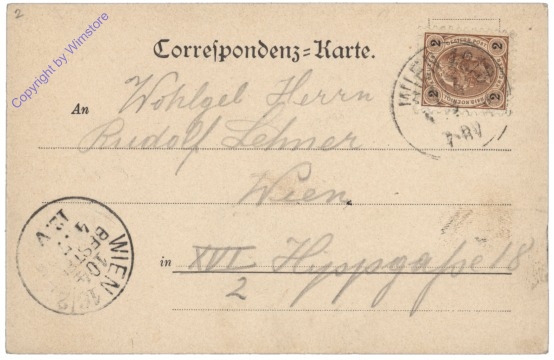 2
Copyright by Wimstore
Correspondenz=Karte.
2 2
2 2
An Wohlgeb Herrn
Rudolf Lehner
Wien
in XVI Hyppgaße 18
2
WIEN 16/2
BEST